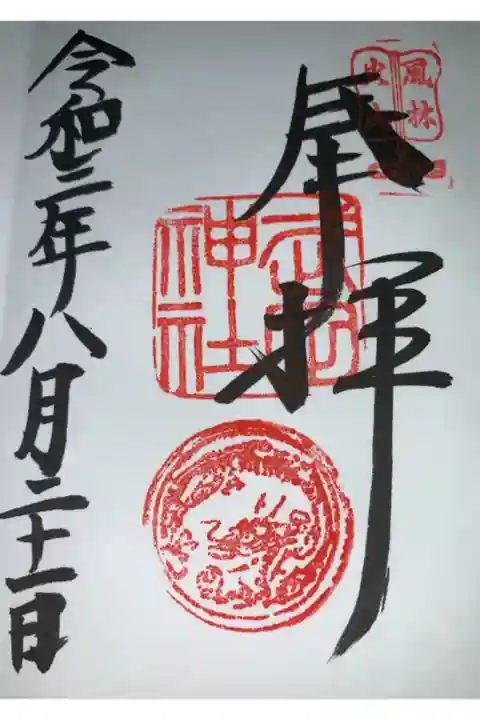 風林
火山
奉拝
武田
神社
令和三年八月二十一日